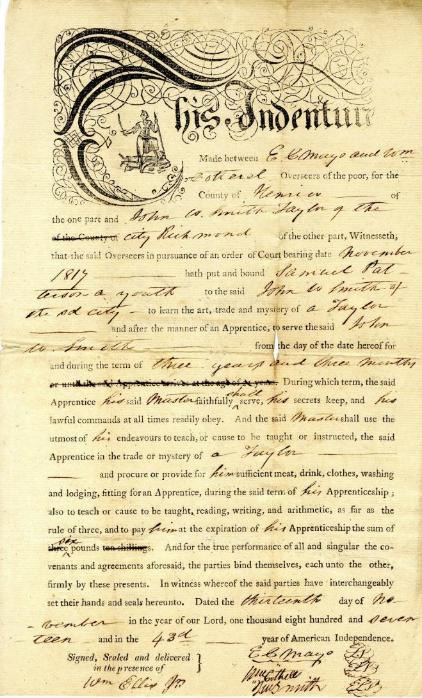 This Indenture
Made between E C Mayo and Wm
Overseers of the poor, for the
County of Henrico of
the one part and John W. Smith Taylor of the
of the County of City Richmond of the other part, Witnesseth,
that the said Overseers in pursuance of an order of Court bearing date November
1817 hath put and bound Samuel Pat-
terson a youth to the said John W Smith of
the sd city – to learn the art, trade and mystery of a Taylor
and after the manner of an Apprentice, to serve the said John
W. Smith from the day of the date hereof for
and during the term of three years and three months
During which term, the said
Apprentice his said Master faithfully shall serve, his secrets keep, and his
lawful commands at all times readily obey. And the said Master shall use the
utmost of his endeavours to teach, or cause to be taught or instructed, the said
Apprentice in the trade or mystery of a Taylor
and procure or provide for him sufficient meat, drink, clothes, washing
and lodging, fitting for an Apprentice, during the said term of his Apprenticeship;
also to teach or cause to be taught, reading, writing, and arithmetic, as far as the
rule of three, and to pay him at the expiration of his Apprenticeship the sum of
three six pounds ten shillings. And for the true performance of all and singular the co-
venants and agreements aforesaid, the parties bind themselves, each unto the other,
firmly by these presents. In witness whereof the said parties have interchangeably
set their hands and seals hereunto. Dated the thirteenth day of No-
vember in the year of our Lord, one thousand eight hundred and seven
teen and in the 43d year of American Independence.
Signed, Sealed and delivered
in the presence of
Wm Ellis Jr.
E C Mayo